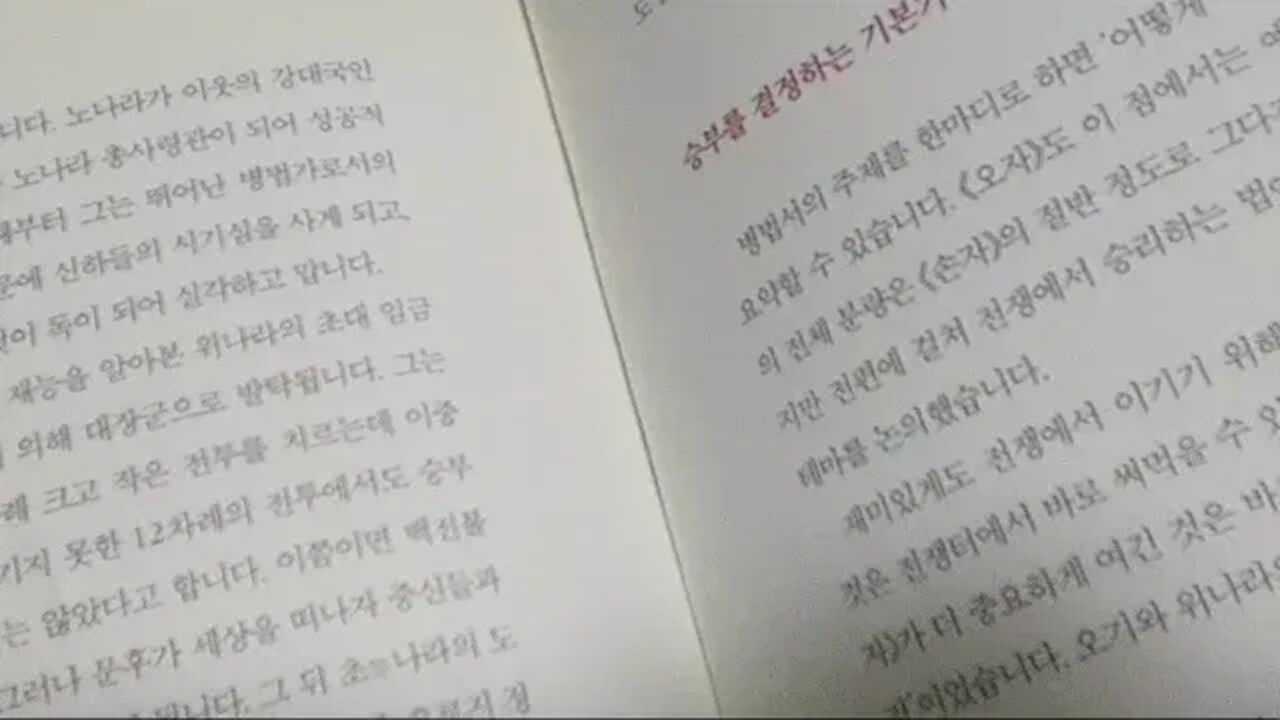 니다. 노나라가 이웃의 강대국인
노나라 총사령관이 되어 성공적
부터 그는 뛰어난 병법가로서의
문에 신하들의 시기심을 사게 되고,
이 독이 되어 실각하고 맙니다.
재능을 알아본 위나라의 초대 임금
의해 대장군으로 발탁됩니다. 그는
크고 작은 전투를 치르는데 이중
기지 못한 12차례의 전투에서도 승부
는 않았다고 합니다. 이쯤이면 백전불
그러나 문후가 세상을 떠나자 중신들과
됩니다. 그 뒤 초나라의 도
승부를 결정하는 기본기
병법서의 주제를 한마디로 하면 '어떻게
요약할 수 있습니다. 《오자》도 이 점에서는
의 전체 분량은 《손자》의 절반 정도로 그다지
지만 전편에 걸쳐 전쟁에서 승리하는
테마를 논의했습니다.
재미있게도 전쟁에서 이기기 위해
것은 전쟁터에서 바로 써먹을 수
자》가 더 중요하게 여긴 것은
이었습니다. 오기와 위나라의